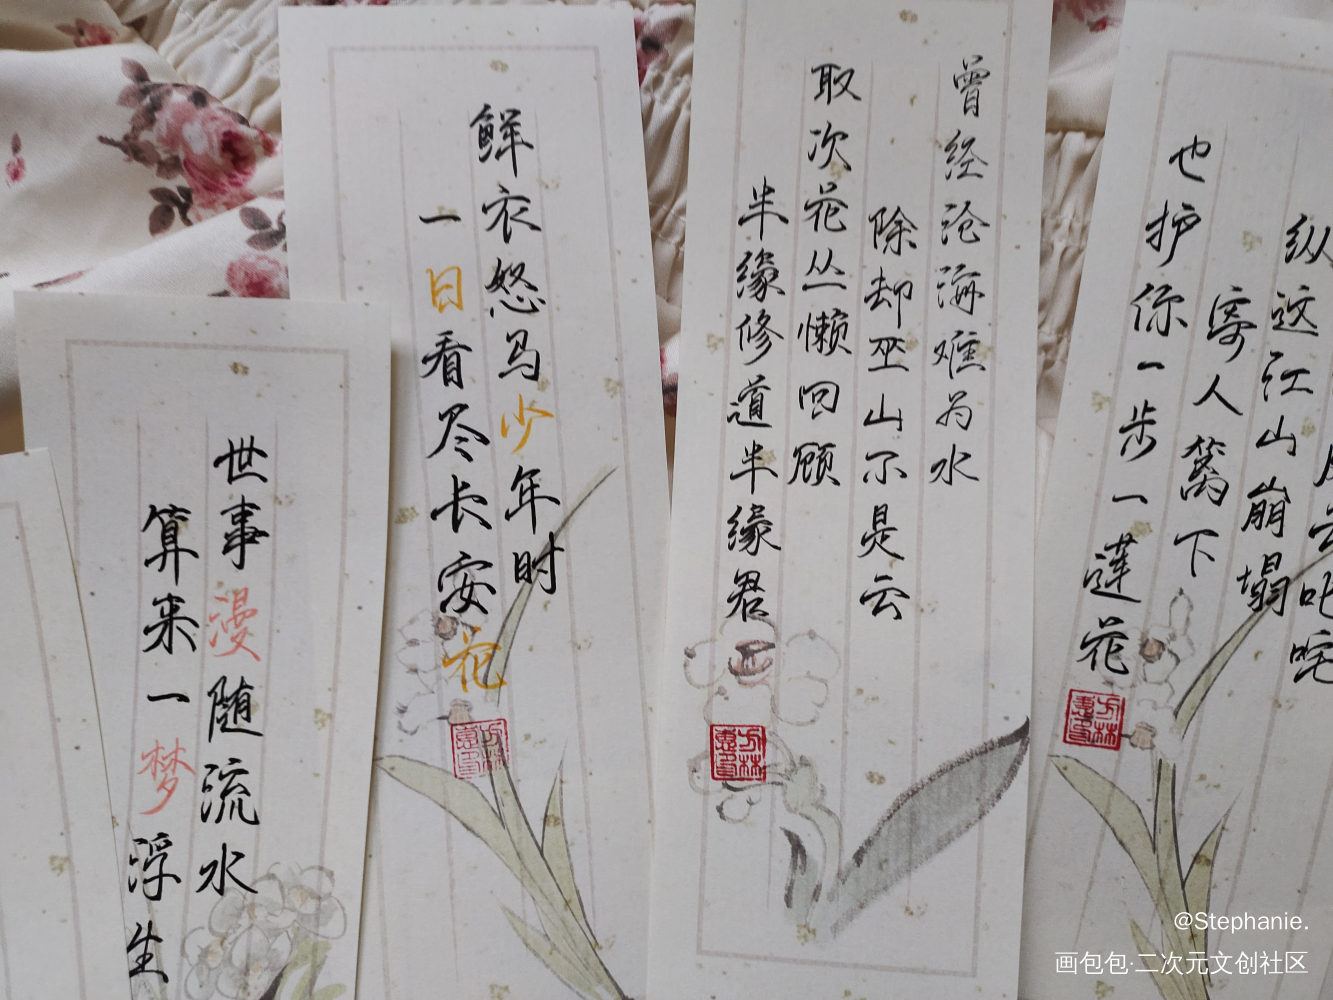 世事漫随流水
算来一梦浮生
鲜衣怒马少年时
一日看尽长安花
曾经沧海难为水
除却巫山不是云
取次花丛懒回顾
半缘修道半缘君
纵这江山崩塌
寄人篱下
也护你一步一莲花
@Stephanie.
画包包·二次元文创社区